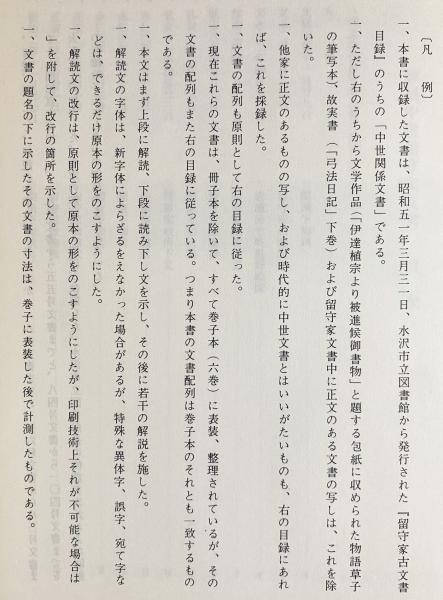 〔凡　例〕
一、本書に収録した文書は、昭和五一年三月三一日、水沢市立図書館から発行された『留守家古文書
目録』のうちの「中世関係文書」である。
一、ただし右のうちから文学作品（「伊達植宗より被進候御書物」と題する包紙に収められた物語草子
の筆写本）、故実書（「弓法日記」下巻）および留守家文書中に正文のある文書の写しは、これを除
いた。
一、他家に正文のあるものの写し、および時代的に中世文書とはいいがたいものも、右の目録にあれ
ば、これを採録した。
一、文書の配列も原則として右の目録に従った。
一、現在これらの文書は、冊子本を除いて、すべて巻子本（六巻）に表装、整理されているが、その
文書の配列もまた右の目録に従っている。つまり本書の文書配列は巻子本のそれとも一致するもの
である。
一、本文はまず上段に解読、下段に読み下し文を示し、その後に若干の解説を施した。
一、解読文の字体は、新字体によらざるをえなかった場合があるが、特殊な異体字、誤字、宛て字な
どは、できるだけ原本の形をのこすようにした。
一、解読文の改行は、原則として原本の形をのこすようにしたが、印刷技術上それが不可能な場合は
」を附して、改行の箇所を示した。
一、文書の題名の下に示したその文書の寸法は、巻子に表装した後で計測したものである。